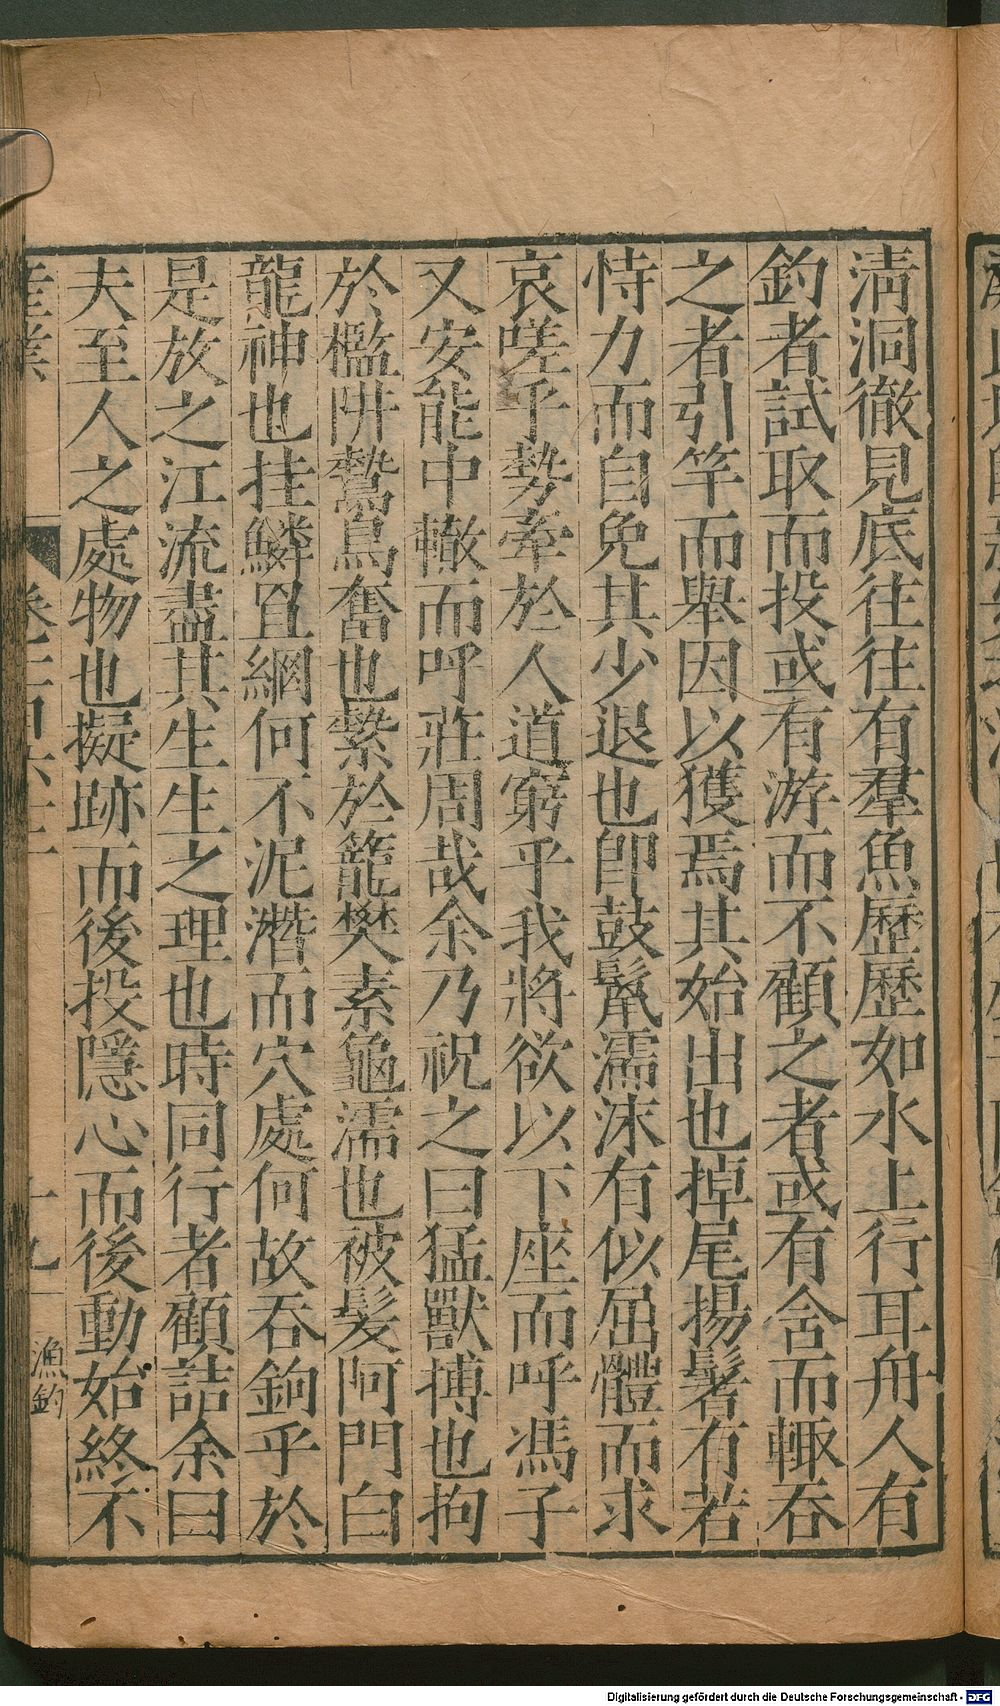 清洞徹見底往往有羣魚歷歷如水上行耳舟人有
釣者試取而投或有游而不顧之者或有含而輙吞
之者引竿而舉因以獲焉其始出也掉尾揚鬐有若
恃力而自免其少退也卽鼓鬣濡沫有似屈體而求
哀嗟乎勢牽於人道窮乎我將欲以下座而呼馮子
又安能中轍而呼莊周哉余乃祝之曰猛獸搏也拘
於檻阱鷙鳥奮也縶於籠樊素龜濡也被髮阿門白
龍神也挂鱗且網何不泥潛而穴處何故吞鉤乎於
是放之江流盡其生生之理也時同行者顧詰余曰
夫至人之處物也擬跡而後投隱心而後動始終不
產業
十九
漁釣
Digitalisierung gefördert durch die Deutsche Forschungsgemeinschaft - DFG